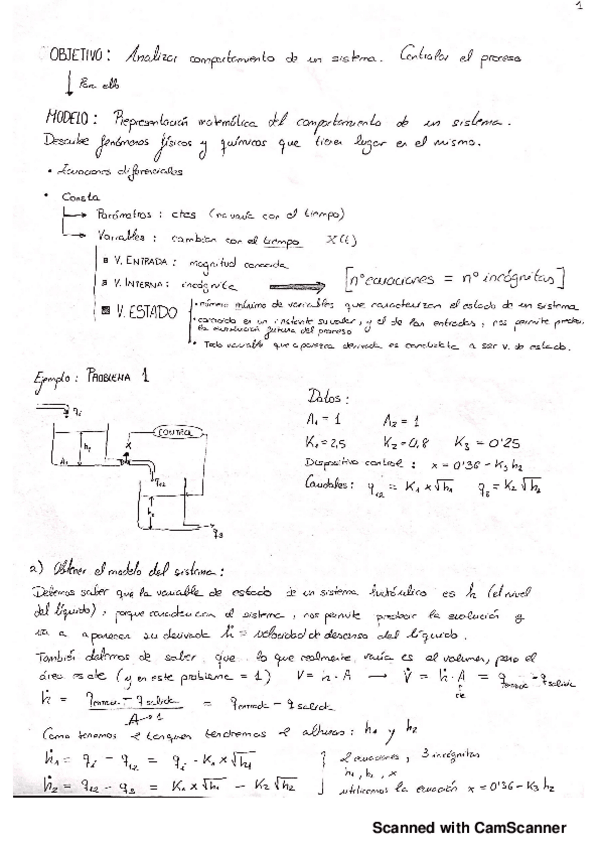 1
OBJETIVO: Analizar comportamiento de un sistema. Controlar el proceso
Para ello
MODELO: Representación matemática del comportamiento de un sistema.
Describe fenómenos físicos y químicos que tienen lugar en el mismo.
• Ecuaciones diferenciales
• Consta
Parámetros: ctes (no varía con el tiempo)
Variables: cambian con el tiempo X(t)
V. ENTRADA: magnitud conocida
V. INTERNA: incógnita
[nº ecuaciones = nº incógnitas]
V. ESTADO
• número mínimo de variables que caracterizan el estado de un sistema
• conocido en un instante su valor, y el de las entradas, nos permite predecir
la evolución futura del proceso
• Toda variable que aparezca derivada es candidata a ser v. de estado.
Ejemplo: PROBLEMA 1
qi
CONTROL
h1
x
A1
q12
h2
q3
Datos:
A1 = 1 A2 = 1
K1 = 2,5 K2 = 0,8 K3 = 0'25
Dispositivo control: x = 0'36 - K3 h2
Caudales: q12 = K1 x √h1 q3 = K2 √h2
a) Obtener el modelo del sistema:
Debemos saber que la variable de estado de un sistema hidráulico es h (el nivel
del líquido), porque caracteriza el sistema, nos permite predecir la evolución y
va a aparecer su derivada ḣ = velocidad de descenso del líquido.
También debemos de saber que lo que realmente varía es el volumen, pero el
área es cte (y en este problema = 1) V = h · A → V̇ = ḣ · A = qentrada - qsalida
cte
ḣ = qentrada - qsalida / A→1 = qentrada - qsalida
Como tenemos 2 tanques tendremos 2 alturas: h1 y h2
ḣ1 = qi - q12 = qi - K1 x √h1
2 ecuaciones, 3 incógnitas
h1, h2, x
ḣ2 = q12 - q3 = K1 x √h1 - K2 √h2
utilizamos la ecuación x = 0'36 - K3 h2
Scanned with CamScanner